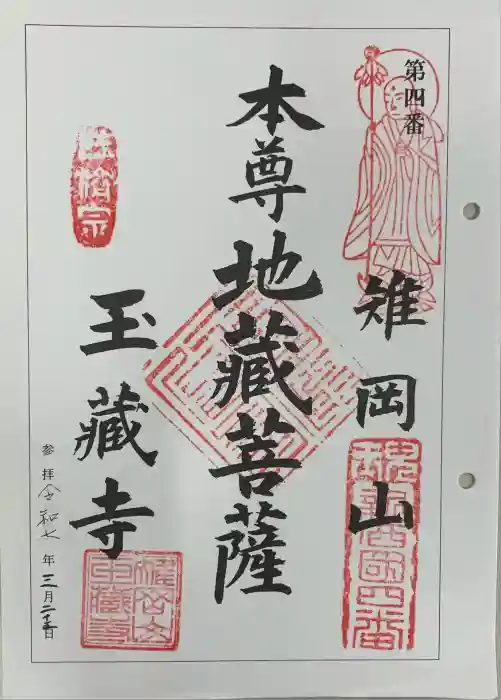 第四番
雉岡山
本尊地藏菩薩
玉藏寺
参拝令和七年三月二十五日